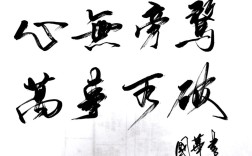 心無旁鶩
萬事可破
國華書